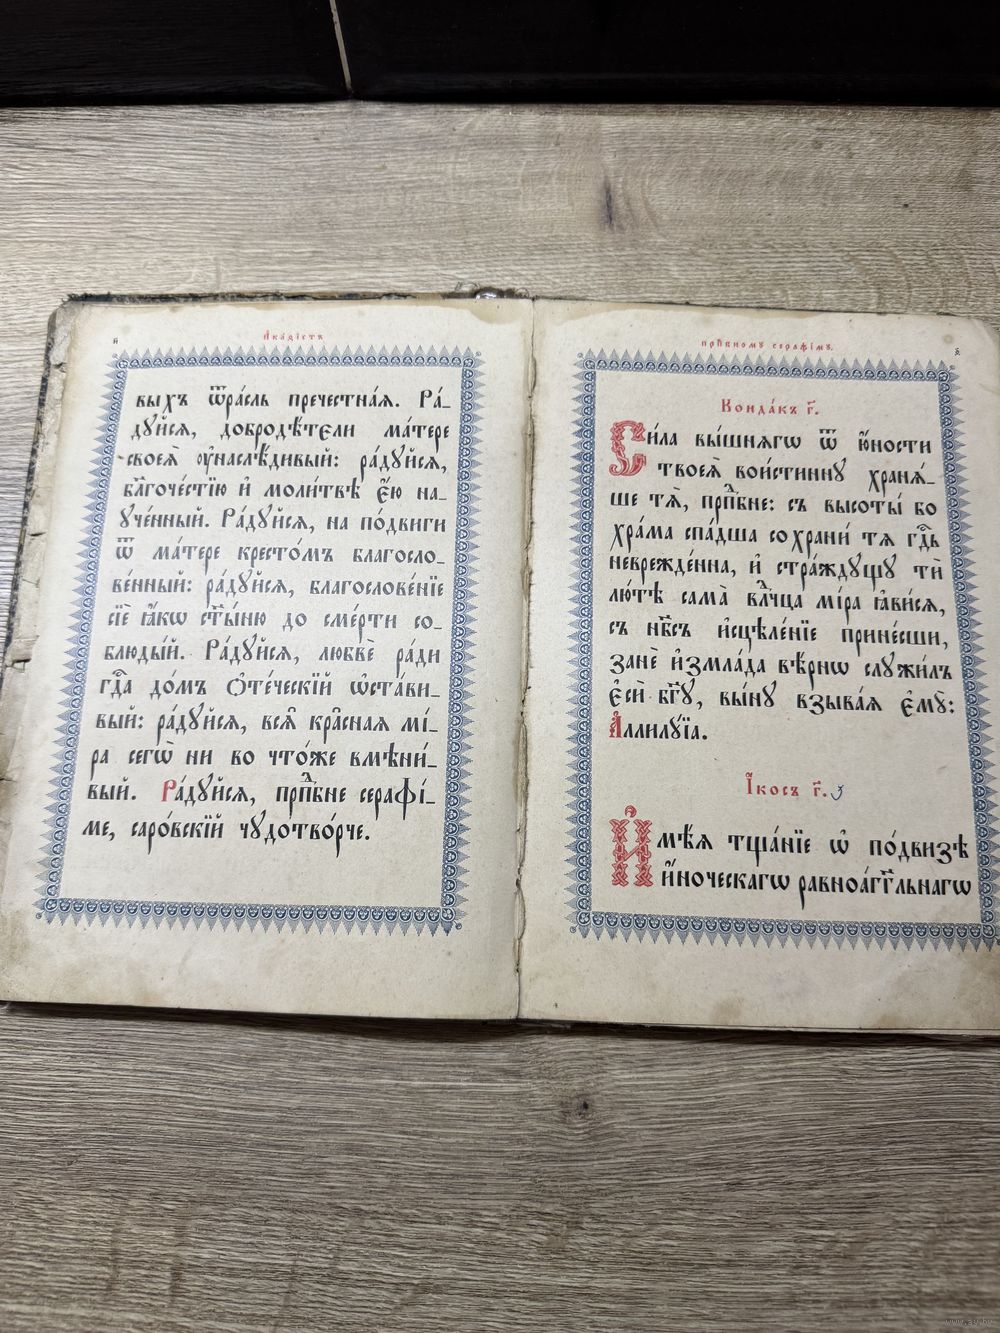 и҃
А҆ка́ѳїстъ
выхъ ѿра́сль пречестна́я. Ра́_
дꙋйсѧ, доброде́тєли ма́тере
своеѧ̀ ᲂу҆наслѣ́дивый: ра́дꙋйсѧ,
бл҃гоче́стїю и҆ моли́твѣ є҆́ю на_
ꙋче́нный. Ра́дꙋйсѧ, на по́двиги
ѿ ма́тере кресто́мъ благосло_
ве́нный: ра́дꙋйсѧ, благослове́нїе
сїѐ ꙗ҆́кѡ ст҃ы́ню до сме́рти со_
блюды́й. Ра́дꙋйсѧ, любвѐ ра́ди
гдⷭ҇а до́мъ Ѻ҆те́ческїй ѡ҆ста́ви_
вый: ра́дꙋйсѧ, всѧ̑ кра̑сная мі́_
ра сегѡ̀ ни во что́же вмѣни́_
вый. Ра́дꙋйсѧ, прпⷣбне серафі́_
ме, саро́вскїй чꙋдотво́рче.
прпⷣбномꙋ серафі́мꙋ.
Конда́къ г҃.
Си́ла вы́шнягѡ ѿ ю҆́ности
твоеѧ̀ вои́стиннꙋ хранѧ́_
ше тѧ̀, прпⷣбне: съ высоты́ бо
хра́ма спа́дша сохрани́ тѧ гдⷭ҇ь
невреже́нна, и҆ стра́ждꙋщꙋ тѝ
лю́тѣ сама̀ влⷣчца мі́ра ꙗ҆ви́сѧ,
съ нб҃съ и҆сцѣле́нїе прине́сши,
занѐ и҆змла́да вѣ́рнѡ слꙋжи́лъ
є҆сѝ бг҃ꙋ, вы́нꙋ взыва́я є҆мꙋ̀:
А҆ллилꙋ́їа.
І҆́косъ г҃.
И҆мѣ́ѧ тща́нїе ѡ҆ по́двизѣ
и҆́ноческагѡ равноа́гг҃льнагѡ
www.ay.by